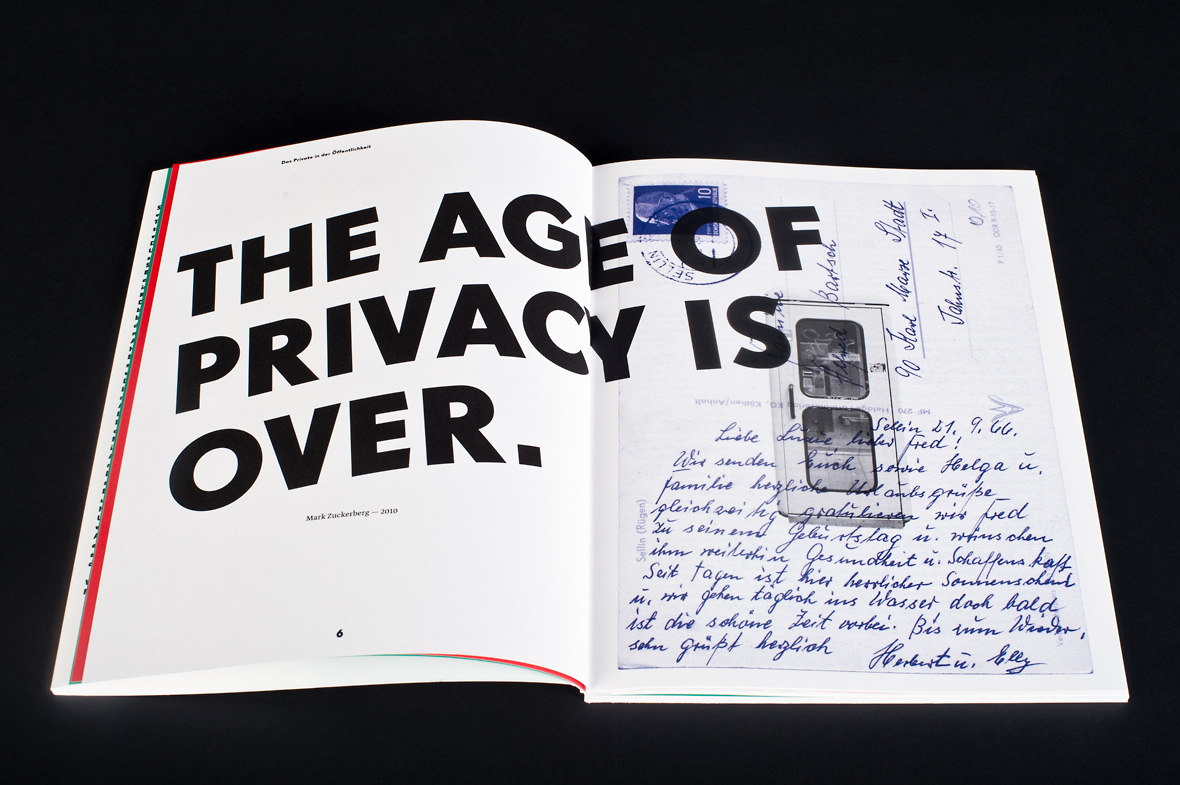 Das Private in der Öffentlichkeit
THE AGE OF
PRIVACY IS
OVER.
Mark Zuckerberg — 2010
6
10
SELLIN
Bartsch
90 Karl Marx Stadt
Jahnstr. 17 I.
0,10
MF 270 Heldge KG, Köthen/Anhalt
Sellin 21. 9. 66.
Liebe Luise lieber Fred!
Wir senden Euch sowie Helga u.
Familie herzliche Urlaubsgrüße
gleichzeitig gratulieren wir Fred
zu seinem Geburtstag u. wünschen
ihm weiterhin Gesundheit u. Schaffenskraft
Seit Tagen ist hier herrlicher Sonnenschein
u. wir gehen täglich ins Wasser doch bald
ist die schöne Zeit vorbei. Bis zum Wieder,
sehn grüßt herzlich
Herbert u. Elly
Sellin (Rügen)